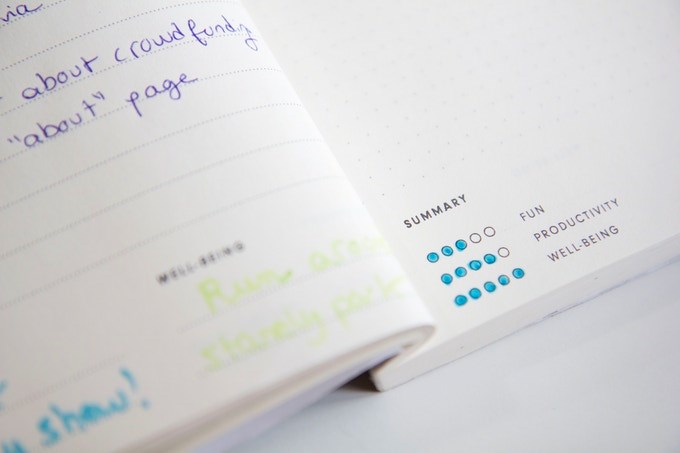 about crowdfunding
"about" page
WELL-BEING
Run
park
show!
SUMMARY
FUN
PRODUCTIVITY
WELL-BEING